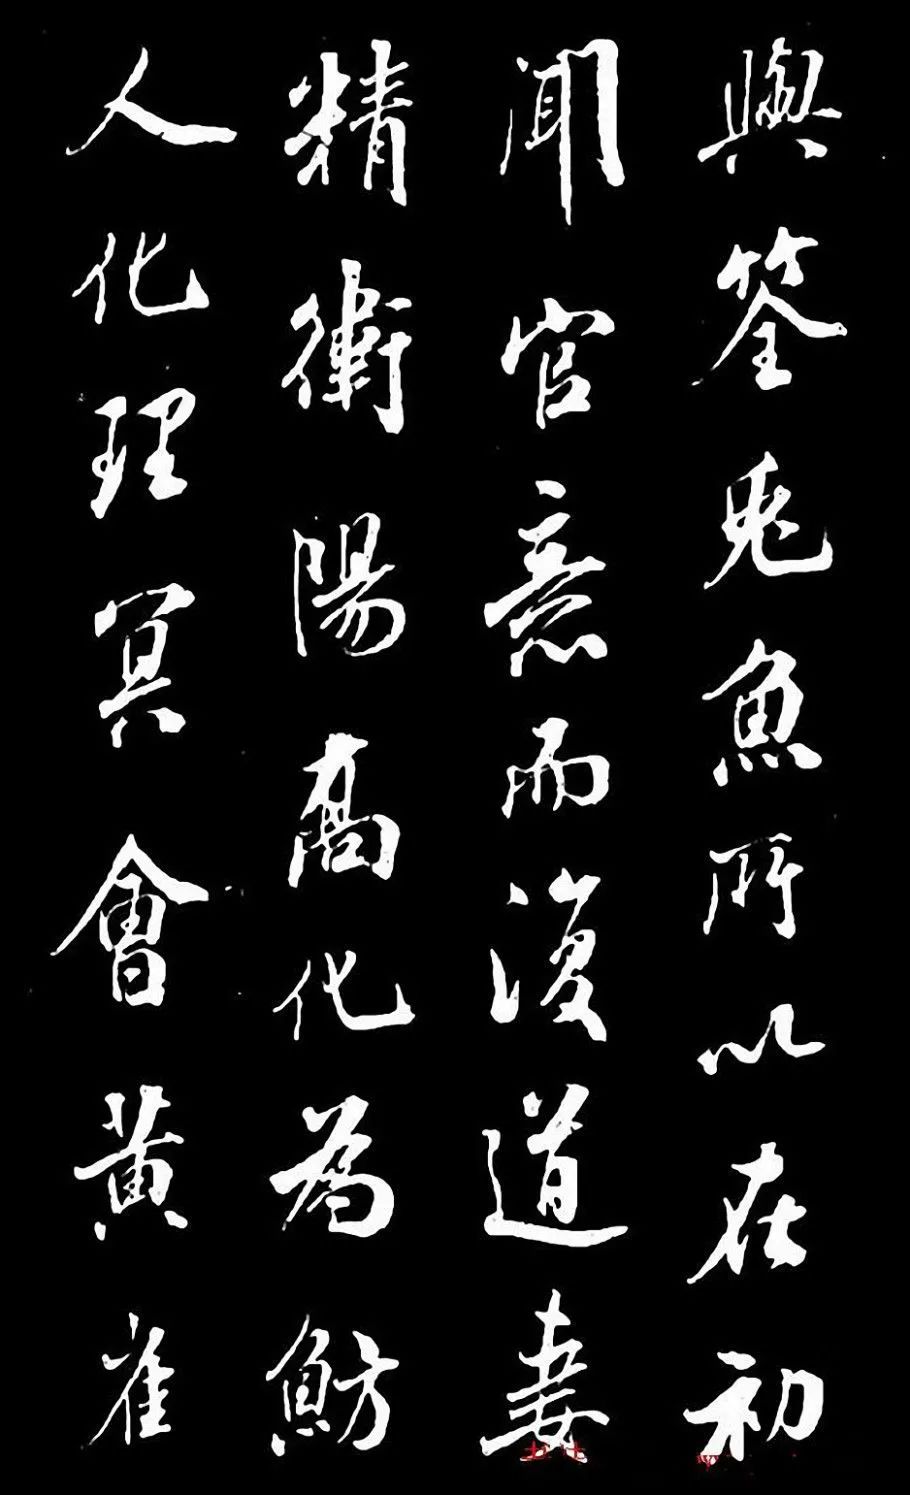 與筌兎魚所以在初
聞官意而復道妻
精衛陽高化為魴
人化理冥會黃雀